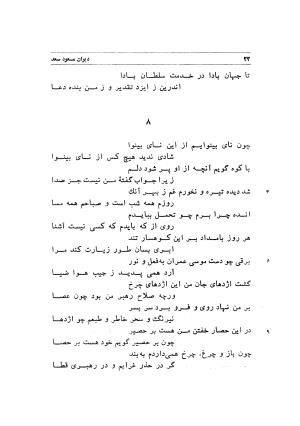 ۲۲ دیوان مسعود سعد
تا جهان بادا در خدمت سلطان بادا
اندرین ز ایزد تقدیر و ز من بنده دعا
۸
چون نای بینوایم از این نای بینوا
شادی ندید هیچ کس از نای بینوا
با کوه گویم آنچه از او پر شود دلم
زیرا جواب گفتهٔ من نیست جز صدا
۳ شد دیده تیره و نخورم غم ز بهر آنک
روزم همه شب است و صباحم همه مسا
انده چرا برم چو تحمل ببایدم
روی از که بایدم که کسی نیست آشنا
هر روز بامداد بر این کوهسار تند
ابری بسان طور زیارت کند مرا
۶ برقی چو دست موسی عمران به فعل و نور
آرد همی پدید ز جیب هوا ضیا
گشت اژدهای جان من این اژدهای چرخ
ورچه صلاح رهبر من بود چون عصا
بر من نهاد روی و فرو برد سر بسر
نیرنگ و سحر خاطر و طبعم چو اژدها
۹ در این حصار خفتن من هست بر حصیر
چون بر حصیر گویم خود هست بر حصا
چون باز و چرغ، چرخ همی‌داردم به بند
گر در حذر غرابم و در رهبری قطا